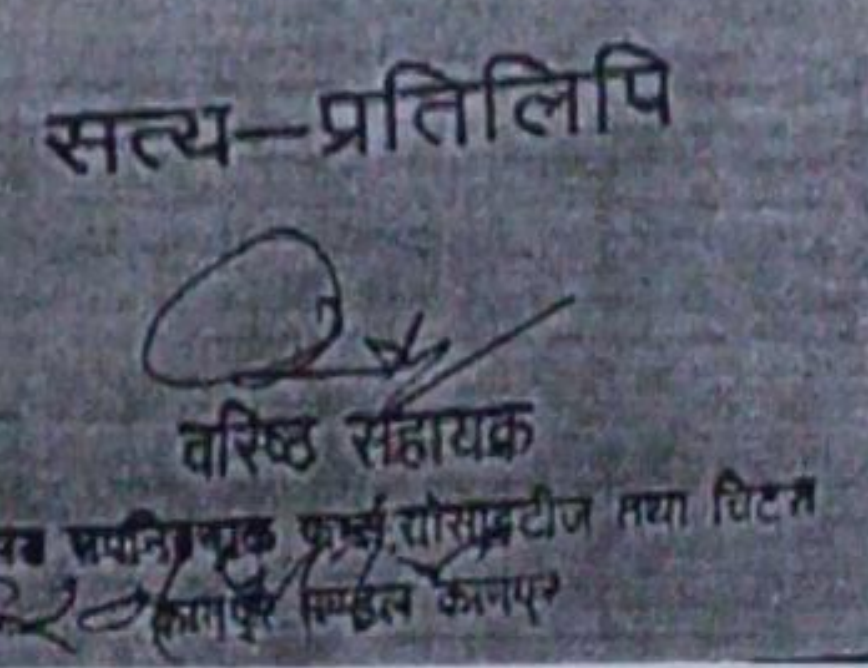 सत्य–प्रतिलिपि
वरिष्ठ सहायक
फर्म्स सोसाइटीज तथा चिट्स
कानपुर मण्डल कानपुर